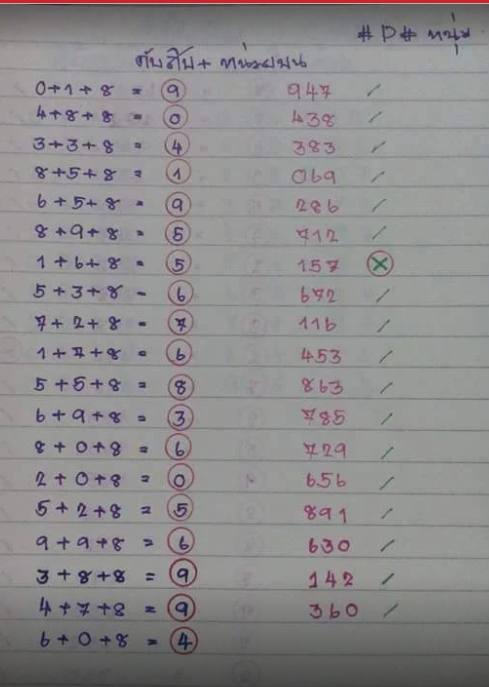 # D # หนุ่ม
ดับสิบ + หน่วยบน
0+1+8 = 9 947 /
4+8+8 = 0 438 /
3+3+8 = 4 383 /
8+5+8 = 1 069 /
6+5+8 = 9 286 /
8+9+8 = 5 712 /
1+6+8 = 5 157 ⊗
5+3+8 = 6 672 /
7+2+8 = 7 116 /
1+7+8 = 6 453 /
5+5+8 = 8 863 /
6+9+8 = 3 785 /
8+0+8 = 6 729 /
2+0+8 = 0 656 /
5+2+8 = 5 891 /
9+9+8 = 6 630 /
3+8+8 = 9 142 /
4+7+8 = 9 360 /
6+0+8 = 4